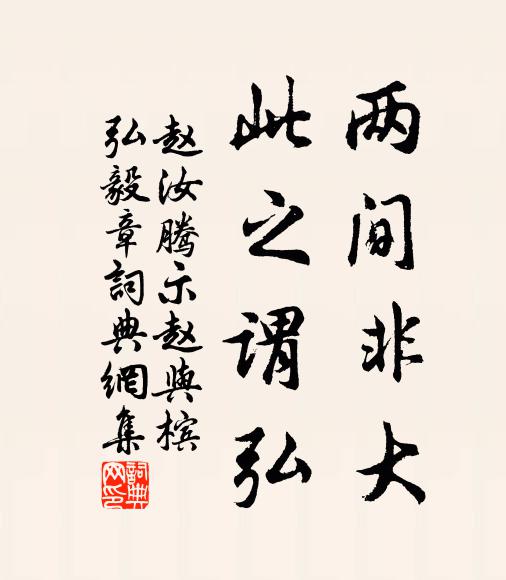 两间非大
此之谓弘
赵汝腾示赵与槟
弘毅章词典网集
词典网印